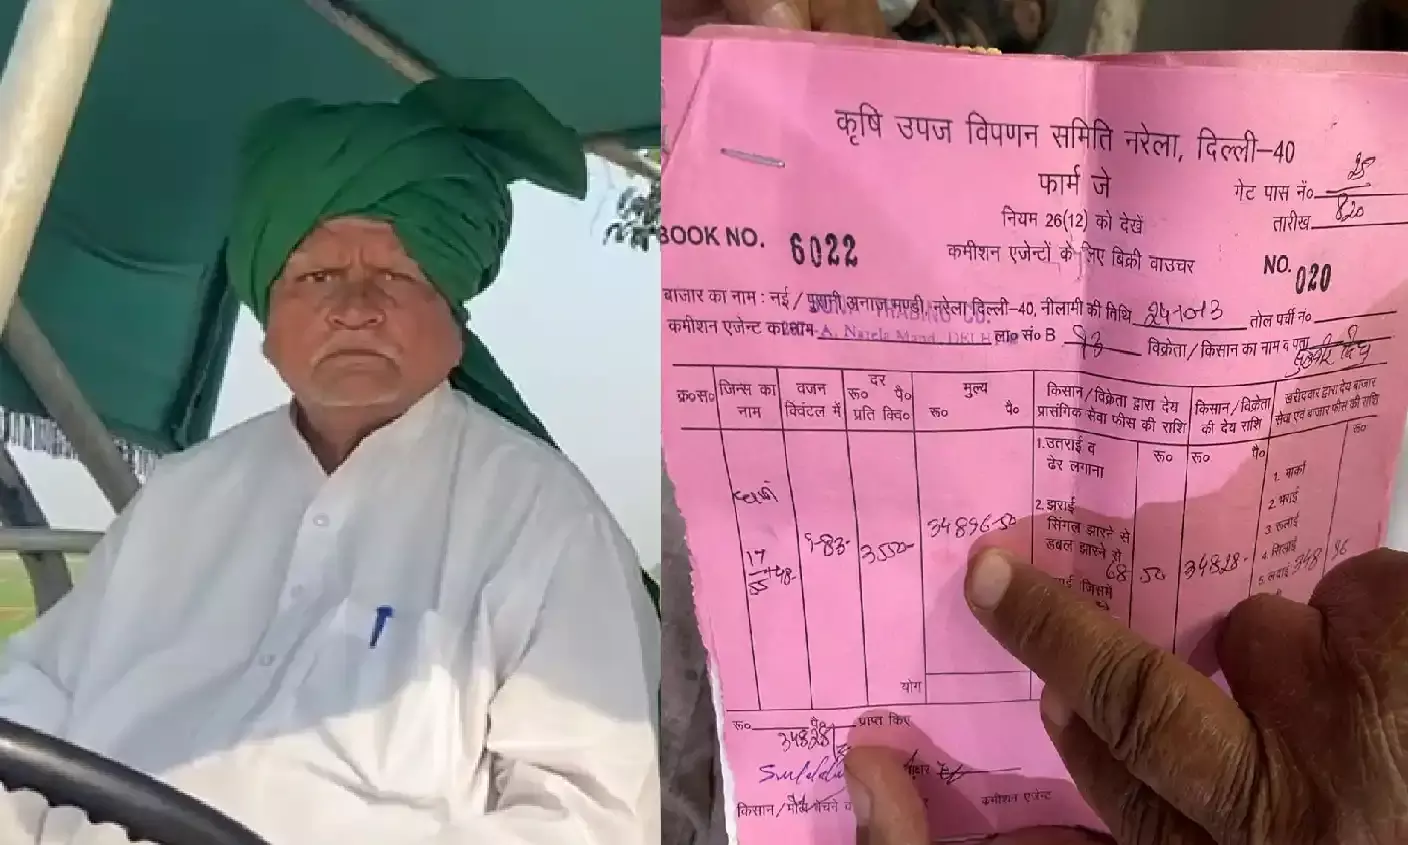 कृषि उपज विपणन समिति नरेला, दिल्ली-40
फार्म जे
गेट पास नं० 25
नियम 26(12) को देखें
तारीख 820
BOOK NO. 6022
कमीशन एजेन्टों के लिए बिक्री वाउचर
NO. 020
बाजार का नाम : नई / पुरानी अनाज मण्डी, नरेला दिल्ली-40, नीलामी की तिथि तोल पर्ची नं०
कमीशन एजेन्ट का नाम A, Narela Mandi, DELHI ला० सं० B 93 विक्रेता / किसान का नाम व पता
क्र०स० जिन्स का नाम वजन क्विंटल में दर रू० पै० प्रति क्वि० मुल्य रू० पै० किसान / विक्रेता द्वारा देय प्रासंगिक सेवा फीस की राशि किसान / विक्रेता की देय राशि खरीददार द्वारा देय बाजार सेवा एवं बाजार फीस की राशि
रू० रू० पै० रू०
1. उतराई व
ढेर लगाना
2. झराई
सिंगल झारने से
डबल झारने से
जिसमें
1. मार्का
2. भराई
3. तुलाई
4. सिलाई
5. लदाई
17
9-83- 3550- 34896-50 68 50 34828- 348 96
योग
रू० 34828 पै० प्राप्त किए
किसान /
कमीशन एजेन्ट